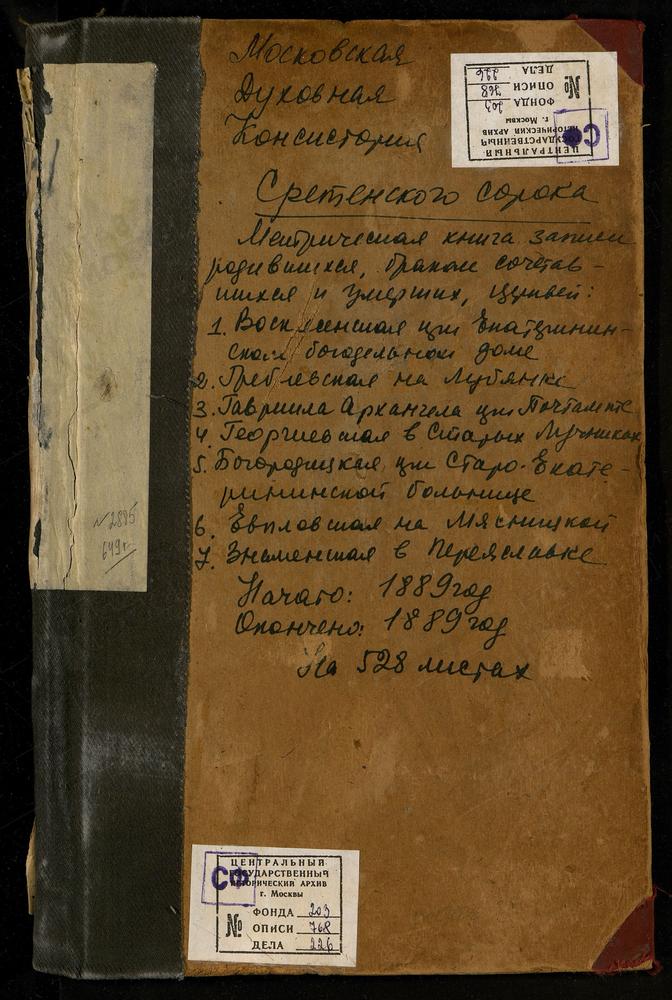 Московская
Духовная
Консистория
ЦЕНТРАЛЬНЫЙ
ГОСУДАРСТВЕННЫЙ
ИСТОРИЧЕСКИЙ АРХИВ
г. Москвы
СФ
№
ФОНДА 203
ОПИСИ 768
ДЕЛА 226
Сретенского сорока
Метрическая книга записи
родившихся, браком сочетав-
шихся и умерших, церквей:
1. Воскресенская при Екатеринин-
ском богадельном доме
2. Гребневская на Лубянке
3. Гавриила Архангела при Почтамте
4. Георгиевская в Старых Лучниках
5. Богородицкая при Старо-Екате-
рининской больнице
6. Евпловская на Мясницкой
7. Знаменская в Переяславке
Начато: 1889 год
Окончено: 1889 год
На 528 листах
N 2895
649г
ЦЕНТРАЛЬНЫЙ
ГОСУДАРСТВЕННЫЙ
ИСТОРИЧЕСКИЙ АРХИВ
г. Москвы
СФ
№
ФОНДА 203
ОПИСИ 768
ДЕЛА 226